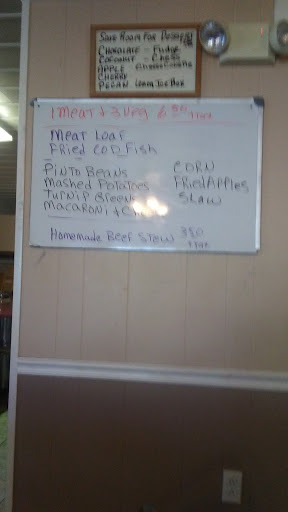 Save Room For Dessert
Chocolate - Fudge
Coconut - Chess
Apple
Cherry
Pecan
1 Meat + 3 Veg 6
Meat Loaf
Fried Cod Fish
Pinto Beans Corn
Mashed Potatoes Fried Apples
Turnip Greens Slaw
Macaroni +
Homemade Beef Stew